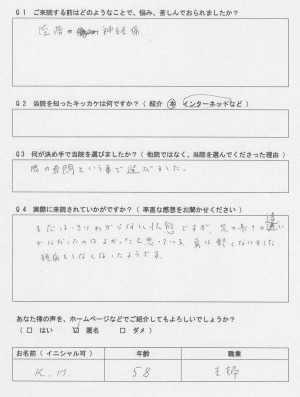 Q1 ご来院する前はどのようなことで、悩み、苦しんでおられましたか?
腰 神経痛
Q2 当院を知ったキッカケは何ですか?( 紹介 本 インターネットなど )
Q3 何が決め手で当院を選びましたか?( 他院ではなく、当院を選んでくださった理由 )
腰の専門という事で選びました。
Q4 実際に来院されていかがですか?( 率直な感想をお聞かせください )
まだはっきりわからない状態ですが、足の長さの違い
がなおったのはよかったと思っている。肩は軽くなりました。
頭痛もしなくなったようです。
あなた様の声を、ホームページなどでご紹介してもよろしいでしょうか?
( □ はい ☑ 匿名 □ ダメ )
お名前( イニシャル可 ) 年齢 職業
K.M. 58 主婦